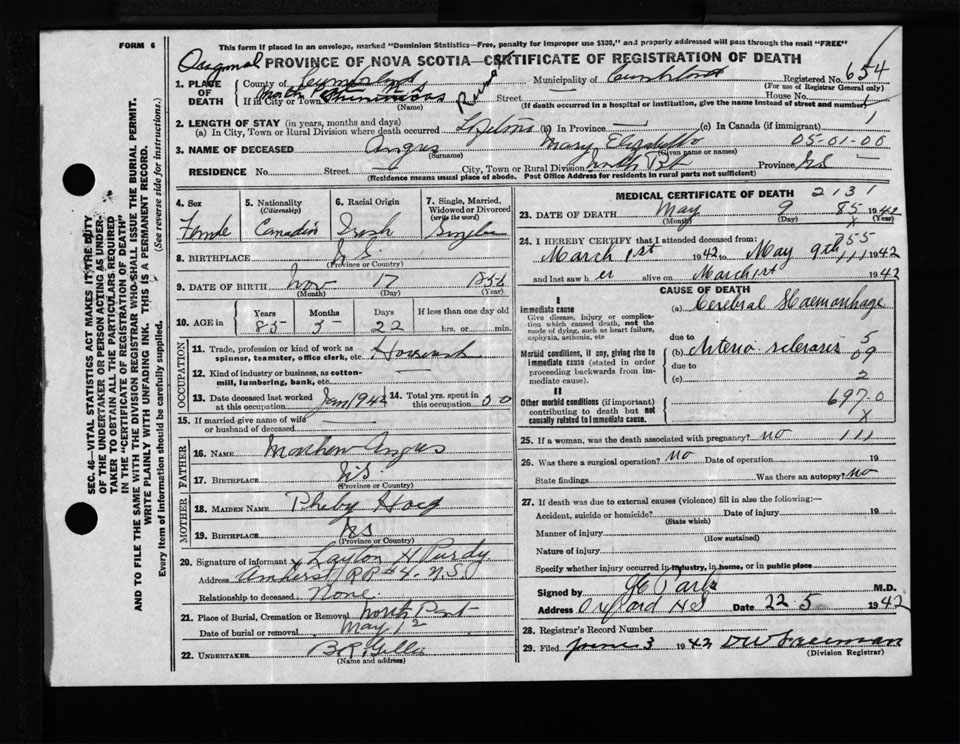 FORM 6
This form if placed in an envelope, marked "Dominion Statistics—Free, penalty for improper use $300," and properly addressed will pass through the mail "FREE"
Original PROVINCE OF NOVA SCOTIA—CERTIFICATE OF REGISTRATION OF DEATH
1. PLACE OF DEATH County of Cumberland Municipality of Cumberland Registered No. 654
(For use of Registrar General only)
If in City or Town North Port Rural Street House No. 1
(Name) (If death occurred in a hospital or institution, give the name instead of street and number)
2. LENGTH OF STAY (in years, months and days) 1
(a) In City, Town or Rural Division where death occurred Lifetime (b) In Province — (c) In Canada (if immigrant)
3. NAME OF DECEASED Angus Mary Elizabeth 05-01-00
(Surname) (Given name or names)
RESIDENCE No. Street City, Town or Rural Division North Port Province NS —
(Residence means usual place of abode. Post Office Address for residents in rural parts not sufficient)
4. Sex Female
5. Nationality (Citizenship) Canadian
6. Racial Origin Irish
7. Single, Married, Widowed or Divorced (write the word) Single
8. BIRTHPLACE N.S.
(Province or Country)
9. DATE OF BIRTH Nov 17 1856
(Month) (Day) (Year)
10. AGE in Years Months Days If less than one day old
85 5 22 hrs. or min.
OCCUPATION
11. Trade, profession or kind of work as spinner, teamster, office clerk, etc. Housework
12. Kind of industry or business, as cotton-mill, lumbering, bank, etc. —
13. Date deceased last worked at this occupation Jan 1942 14. Total yrs. spent in this occupation 50
15. If married give name of wife or husband of deceased —
FATHER
16. NAME Mathew Angus
17. BIRTHPLACE N.S
(Province or Country)
MOTHER
18. MAIDEN NAME Pheby Hoeg
19. BIRTHPLACE NS
(Province or Country)
20. Signature of informant x Layton H Purdy
Address Amherst RR #4. N.S
Relationship to deceased None
21. Place of Burial, Cremation or Removal North Port
Date of burial or removal May 12
22. UNDERTAKER
(Name and address)
MEDICAL CERTIFICATE OF DEATH 2131
23. DATE OF DEATH May 9 85 1942
(Month) (Day) X (Year)
24. I HEREBY CERTIFY that I attended deceased from: 755
March 1st 1942 to May 9th 111 1942
and last saw her alive on March 1st 1942
CAUSE OF DEATH
I
Immediate cause
Give disease, injury or complication which caused death, not the mode of dying, such as heart failure, asphyxia, asthenia, etc
(a) Cerebral Haemorrhage
due to 5
Morbid conditions, if any, giving rise to immediate cause (stated in order proceeding backwards from immediate cause).
(b) Arterio-sclerosis 09
due to
(c) 2
II
Other morbid conditions (if important) contributing to death but not causally related to immediate cause.
697-0
X
25. If a woman, was the death associated with pregnancy? no 111
26. Was there a surgical operation? no Date of operation 19
State findings Was there an autopsy? no
27. If death was due to external causes (violence) fill in also the following:—
Accident, suicide or homicide? Date of injury 19
(State which)
Manner of injury
(How sustained)
Nature of injury
Specify whether injury occurred in industry, in home, or in public place
Signed by M.D.
Address Oxford NS Date 22-5 1942
28. Registrar's Record Number
29. Filed June 3 1942 DW Freeman
(Division Registrar)
SEC. 46—VITAL STATISTICS ACT MAKES IT THE DUTY
OF THE UNDERTAKER OR PERSON ACTING AS UNDER-
TAKER TO OBTAIN ALL THE PARTICULARS REQUIRED
IN THE "CERTIFICATE OF REGISTRATION OF DEATH"
AND TO FILE THE SAME WITH THE DIVISION REGISTRAR WHO SHALL ISSUE THE BURIAL PERMIT.
WRITE PLAINLY WITH UNFADING INK. THIS IS A PERMANENT RECORD.
Every item of information should be carefully supplied. (See reverse side for instructions.)